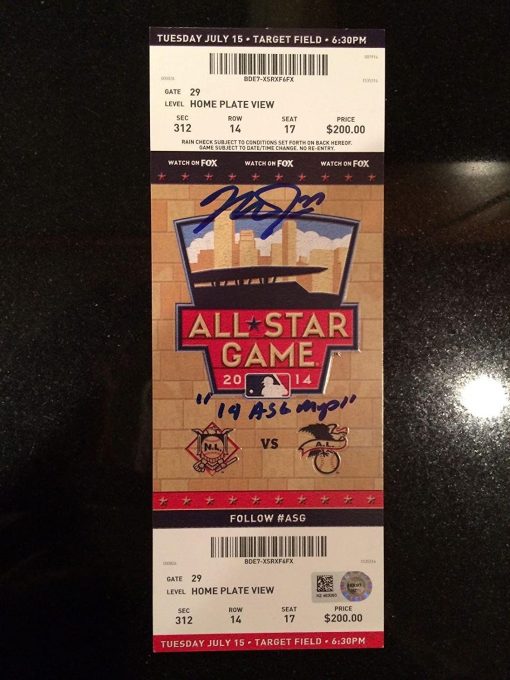 TUESDAY JULY 15 • TARGET FIELD • 6:30PM
BDE7-XSRXF6FX
GATE 29
LEVEL HOME PLATE VIEW
SEC ROW SEAT PRICE
312 14 17 $200.00
RAIN CHECK SUBJECT TO CONDITIONS SET FORTH ON BACK HEREOF.
GAME SUBJECT TO DATE/TIME CHANGE. NO RE-ENTRY.
WATCH ON FOX WATCH ON FOX WATCH ON FOX
ALL★STAR
GAME
20 14
"14 ASG MVP"
N.L. VS A.L.
FOLLOW #ASG
BDE7-XSRXF6FX
GATE 29
LEVEL HOME PLATE VIEW
SEC ROW SEAT PRICE
312 14 17 $200.00
TUESDAY JULY 15 • TARGET FIELD • 6:30PM